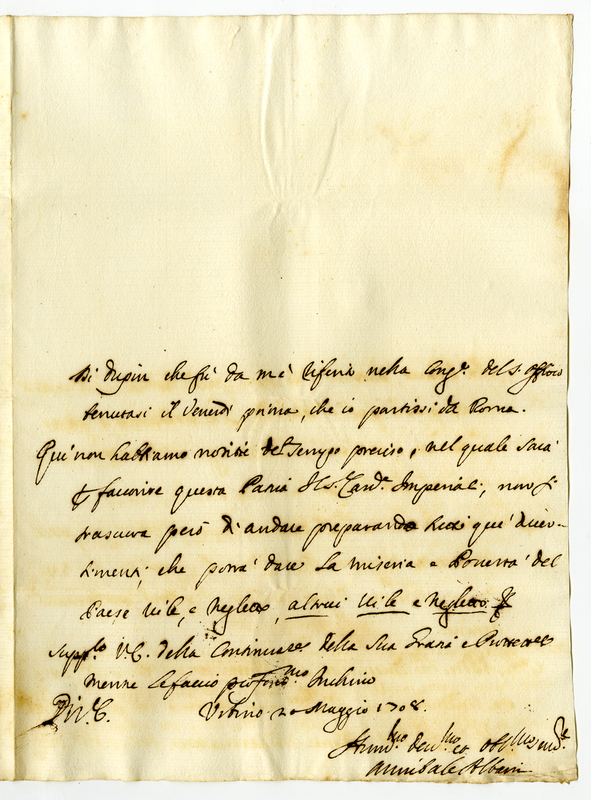 di dupin che fù da mé riferita nella Cong.e del S. Offizio
tenutasi il Venerdì prima, che io partissi da Roma.
Qui non habbiamo notitie del tempo preciso, nel quale sarà
p favorire questa Patria il S.r Card.e Imperiali, non si
trascura però di andare preparando tutti que' diver-
timenti, che potrà dare la miseria e Povertà del
Paese vile, e negletto, altrui vile e negletto. E
supp.do V.E. della Continuaz.e della Sua Grazia e Protez.e
mentre le faccio profonд.mo Inchino
Di V.E. Urbino 20 Maggio 1708.
Hum.mo Dev.mo et Obl.mo
Annibale Albani